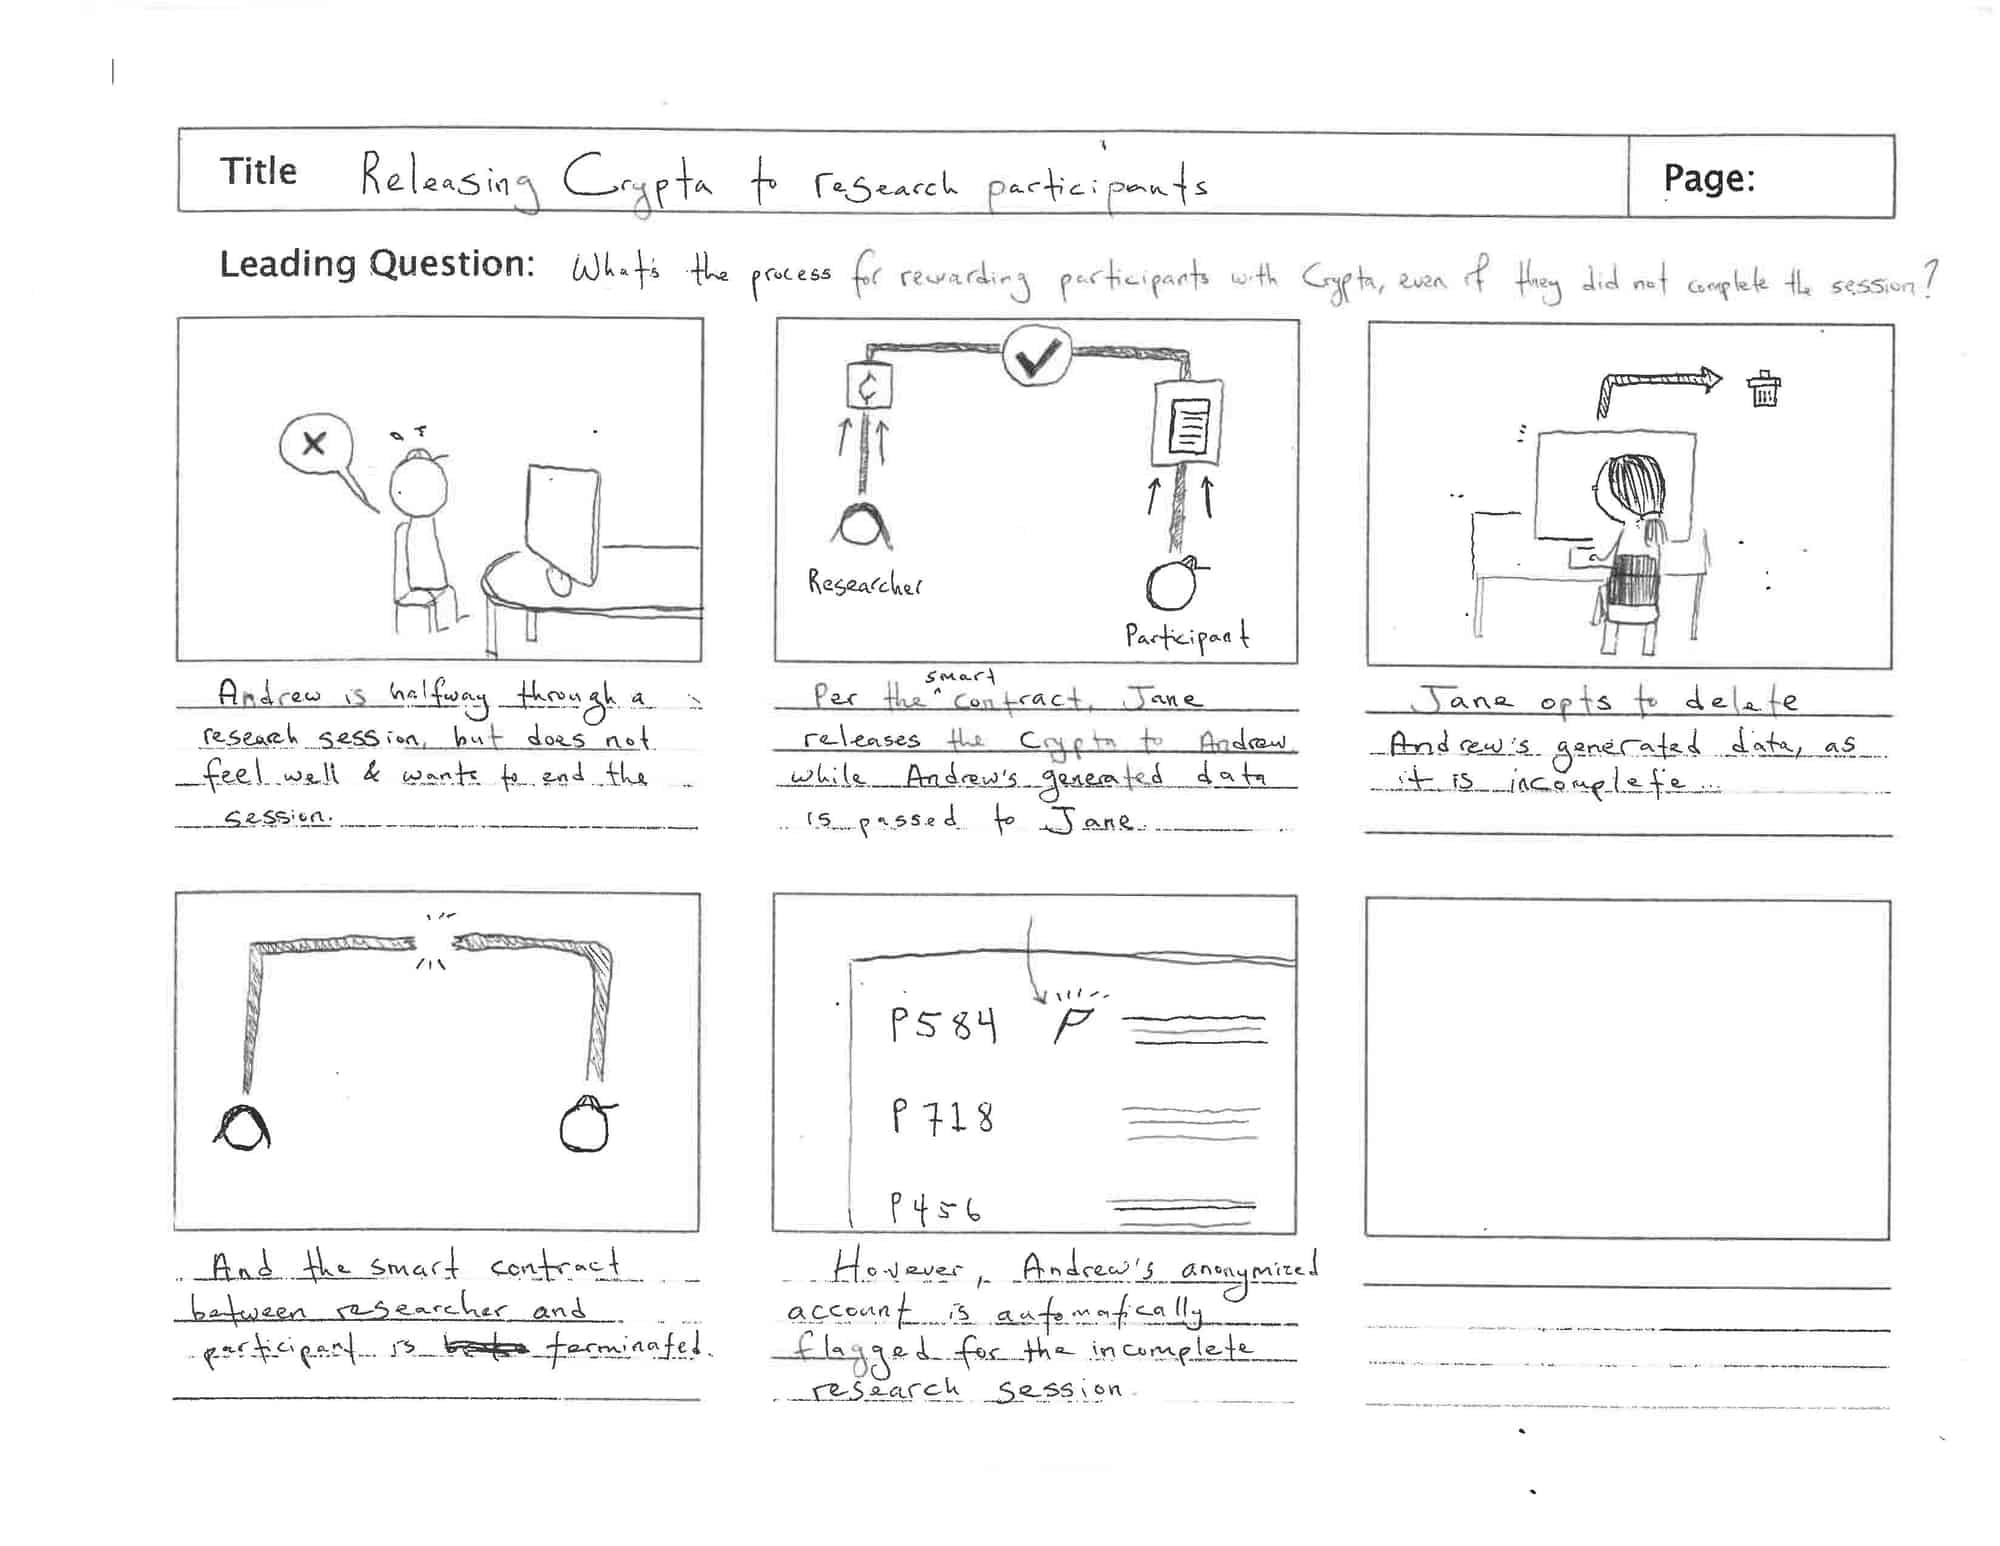 Title Releasing Crypta to research participants
Page:
Leading Question: What's the process for rewarding participants with Crypta, even if they did not complete the session?
Researcher
Participant
Andrew is halfway through a
research session, but does not
feel well & wants to end the
session.
Per the smart contract, Jane
releases the Crypta to Andrew
while Andrew's generated data
is passed to Jane.
Jane opts to delete
Andrew's generated data, as
it is incomplete...
P584
P718
P456
And the smart contract
between researcher and
participant is terminated.
However, Andrew's anonymized
account is automatically
flagged for the incomplete
research session.